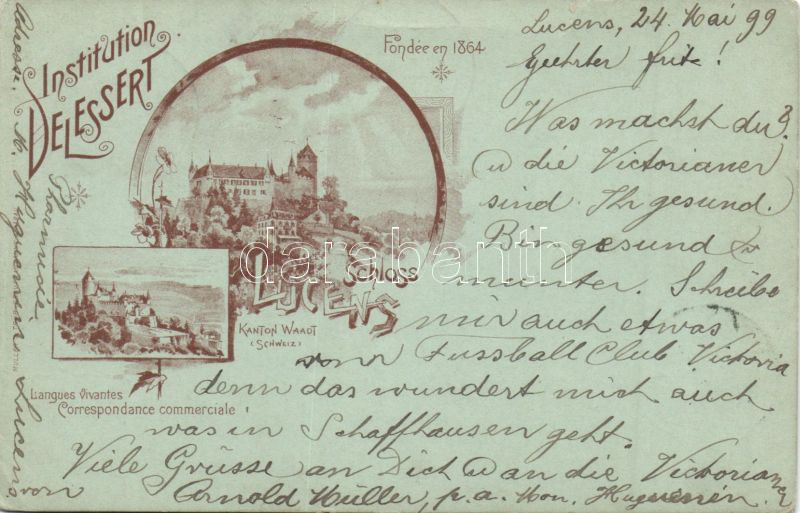 Institution
DELESSERT
Fondée en 1864
SCHLOSS
LUCENS
KANTON WAADT
(SCHWEIZ)
Langues vivantes
Correspondance commerciale
Lucens, 24 Mai 99
Geehrter Fritz!
Was machst du?
u die Victorianer
sind. Ihr gesund.
Bin gesund &
munter. Schreibe
mir auch etwas
vom Fussball Club Victoria
denn das wundert mich auch
was in Schaffhausen geht.
Viele Grüsse an Dich u an die Victorianer
von Arnold Müller, p.a. Mon. Huguenin
Adresse. M. Huguenin Lucens
darabanth